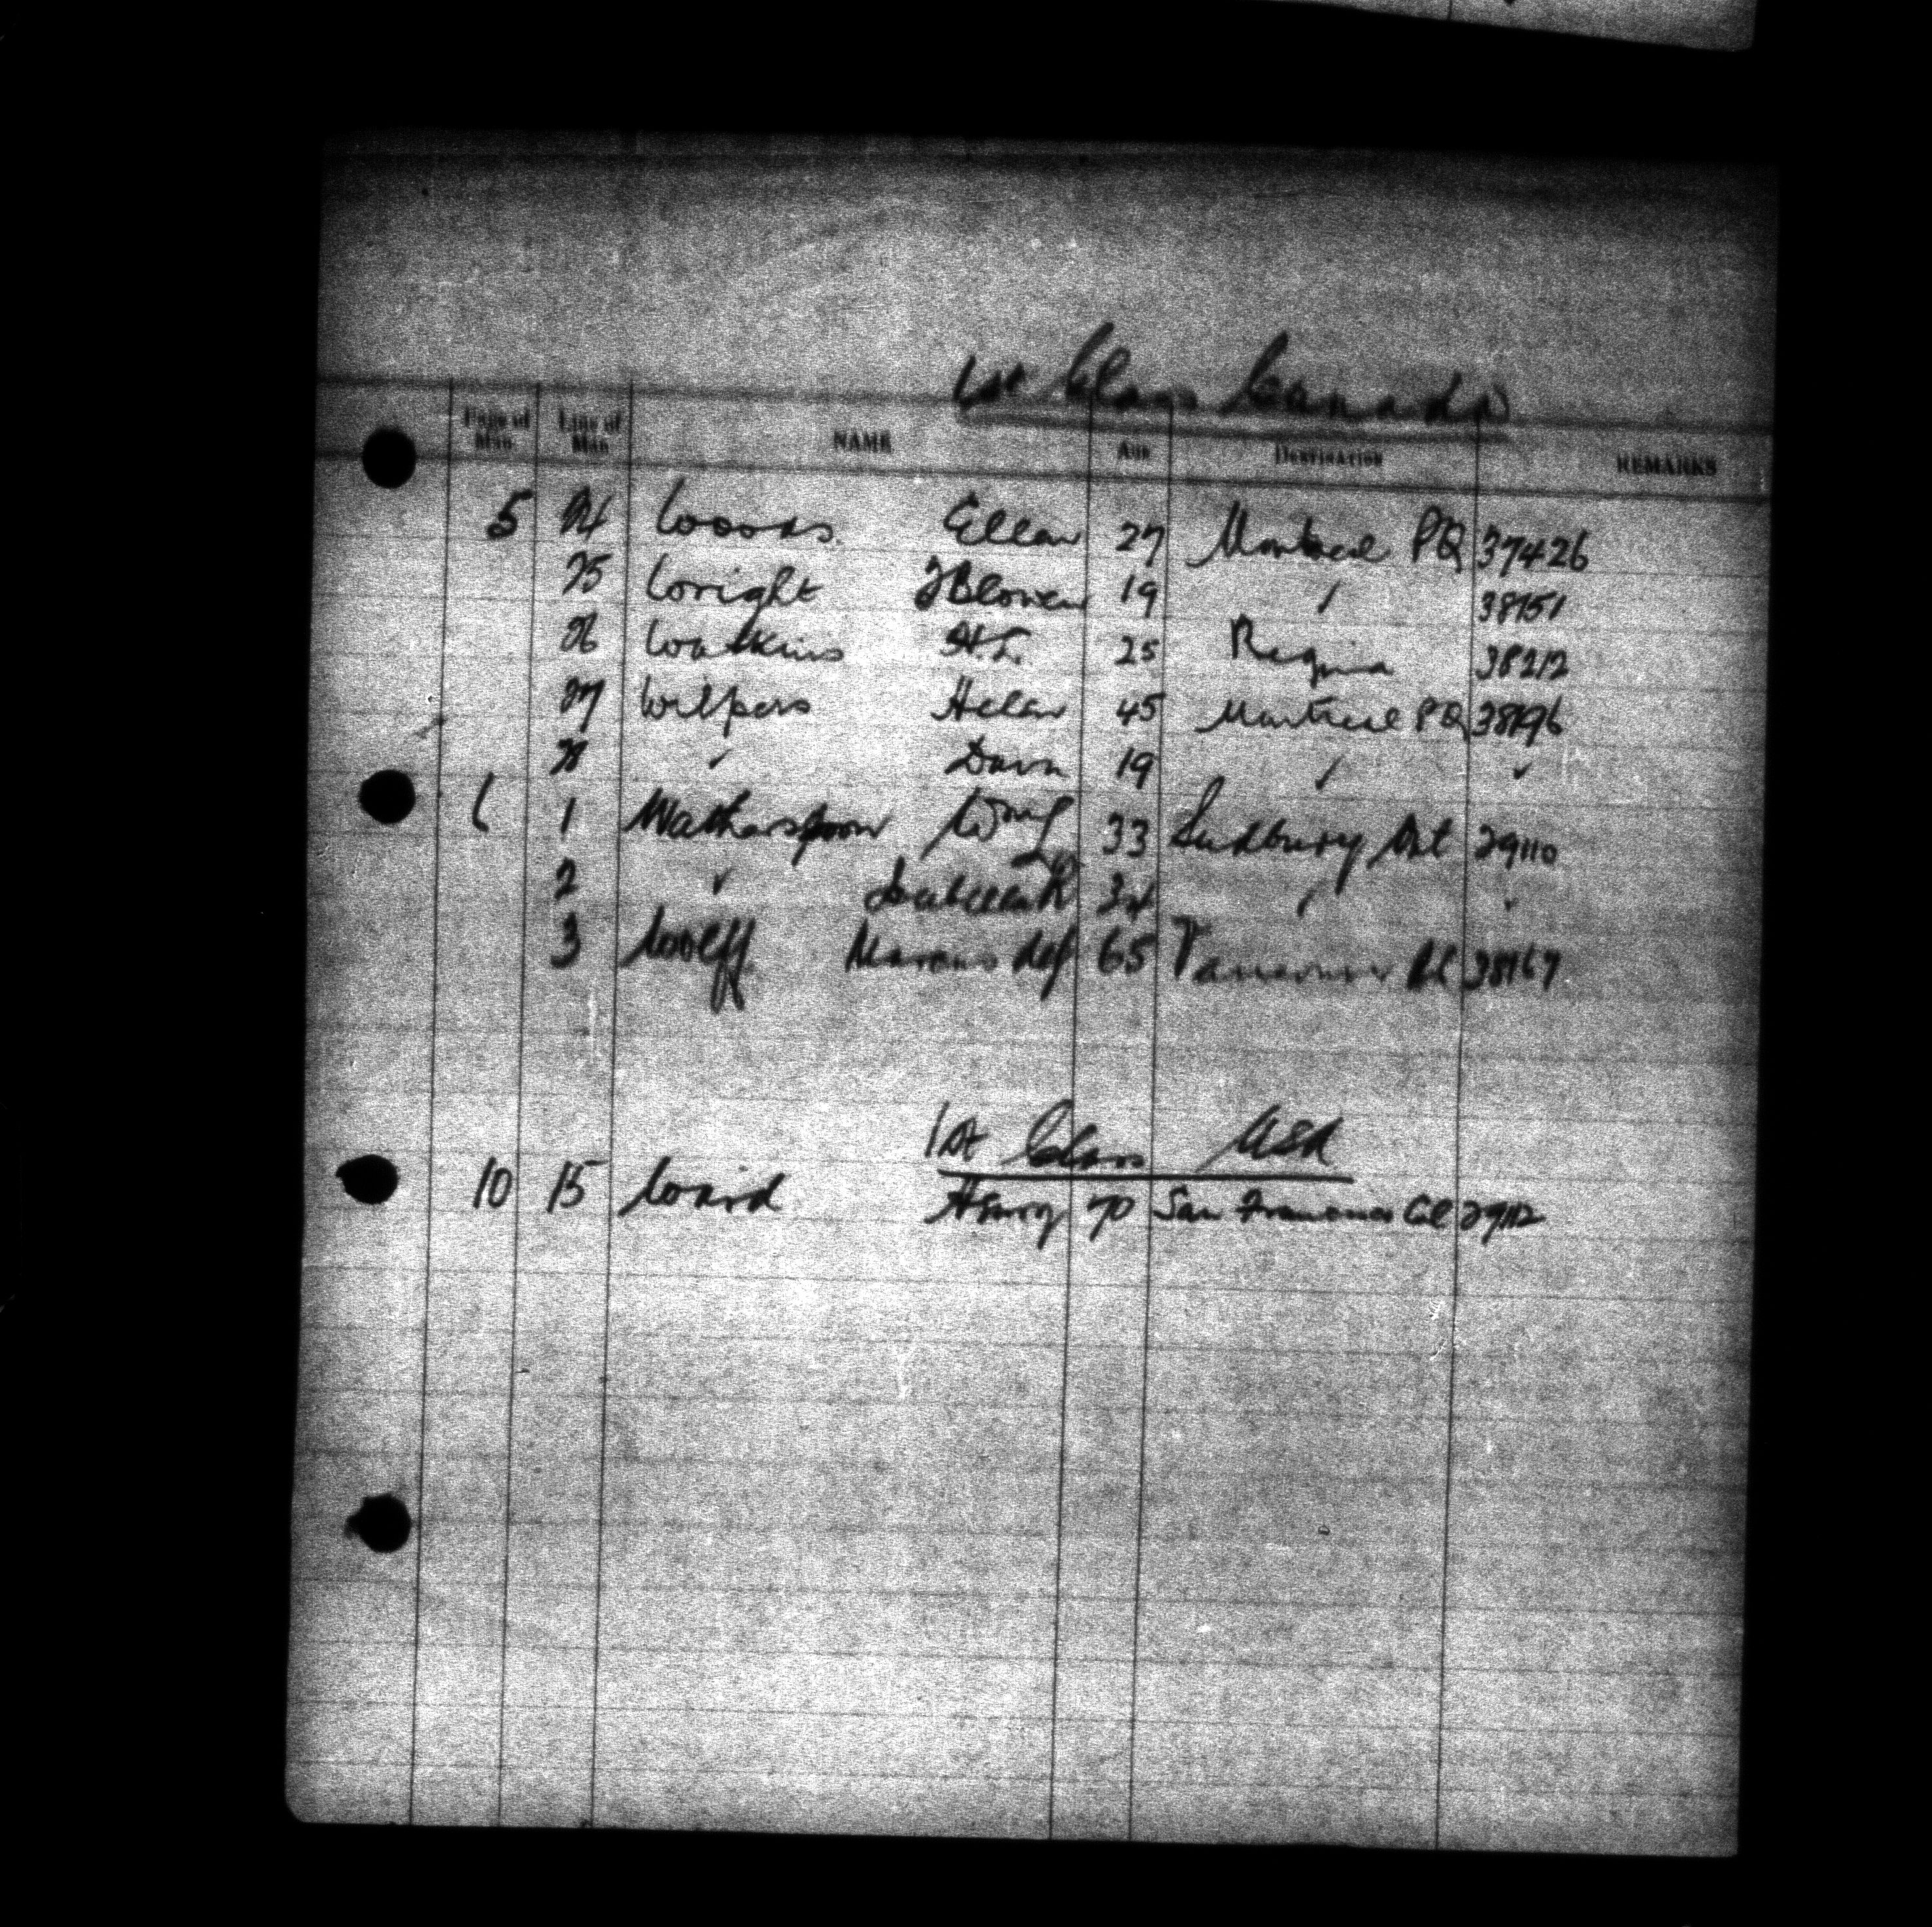 1st Class Canada
Page of Man. Line of Man NAME Age Destination REMARKS
5 24 Woods Ellen 27 Montreal PQ 37426
25 Wright 19 " 38151
26 Watkins H.L. 25 Regina 38212
27 Wilpers Helen 45 Montreal PQ 38196
28 " Dawn 19 " "
6 1 Watherspoon Wm 33 Sudbury Ont 29110
2 " Isabella 34 " "
3 Wolff Marcus 65 Vancouver BC 38167
1st Class USA
10 15 Ward Henry 70 San Francisco Cal 29112